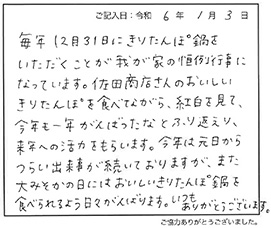 ご記入日：令和 6 年 1 月 3 日
毎年12月31日にきりたんぽ鍋を
いただくことが我が家の恒例行事に
なっています。佐田商店さんのおいしい
きりたんぽを食べながら、紅白を見て、
今年も一年がんばったなとふり返えり、
来年への活力をもらいます。今年は元日から
つらい出来事が続いておりますが、また
大みそかの日にはおいしいきりたんぽ鍋を
食べられるよう日々がんばります。いつも
ありがとうございます。
ご協力ありがとうございました。